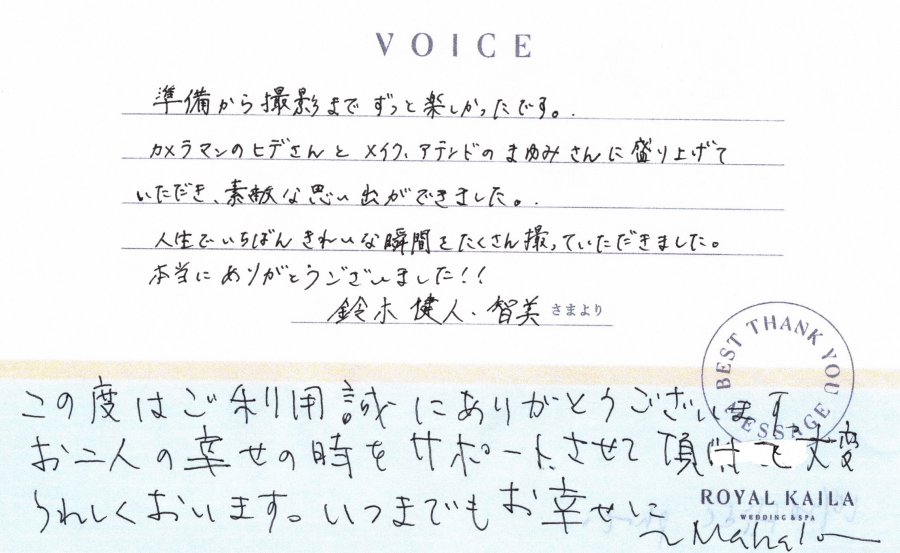 VOICE
準備から撮影まで ずっと楽しかったです。
カメラマンのヒデさんと メイク、アテンドの まゆみさんに盛り上げて
いただき、素敵な思い出ができました。
人生でいちばん きれいな瞬間をたくさん撮っていただきました。
本当にありがとうございました!!
鈴木 健人・智美 さまより
BEST THANK YOU MESSAGE
この度はご利用誠にありがとうございます。
お二人の幸せの時をサポートさせて頂けて大変
うれしくおいます。いつまでもお幸せに
ROYAL KAILA
WEDDING & SPA
~Mahalo~